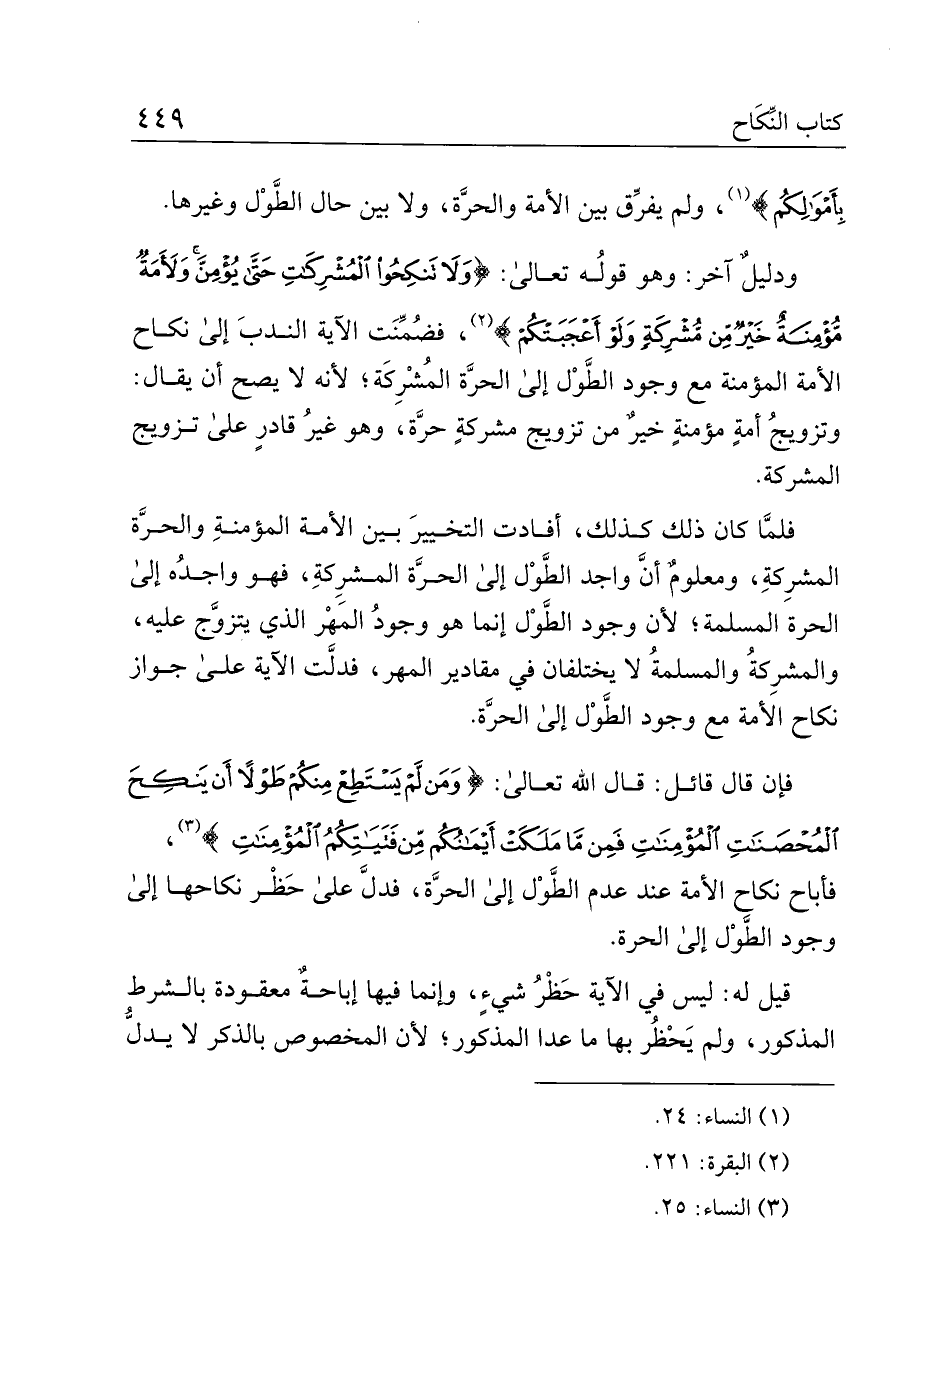 كتاب النِّكَاح ٤٤٩
بِأَمْوَٰلِكُم ﴾(١)، ولم يفرِّق بين الأمة والحرَّة، ولا بين حال الطَّوْل وغيرها.
ودليلٌ آخر: وهو قولُه تعالىٰ: ﴿وَلَا تَنكِحُوا۟ ٱلْمُشْرِكَٰتِ حَتَّىٰ يُؤْمِنَّ ۚ وَلَأَمَةٌ
مُّؤْمِنَةٌ خَيْرٌ مِّن مُّشْرِكَةٍ وَلَوْ أَعْجَبَتْكُمْ ﴾(٢)، فضُمِّنَت الآية الندبَ إلىٰ نكاح
الأمة المؤمنة مع وجود الطَّوْل إلىٰ الحرَّة المُشْرِكَة؛ لأنه لا يصح أن يقال:
وتزويجُ أمةٍ مؤمنةٍ خيرٌ من تزويج مشركةٍ حرَّة، وهو غيرُ قادرٍ علىٰ تزويج
المشركة.
فلمَّا كان ذلك كذلك، أفادت التخييرَ بين الأمة المؤمنةِ والحرَّة
المشركةِ، ومعلومٌ أنَّ واجد الطَّوْل إلىٰ الحرَّة المشركةِ، فهو واجدُه إلىٰ
الحرة المسلمة؛ لأن وجود الطَّوْل إنما هو وجودُ المَهْر الذي يتزوَّج عليه،
والمشركةُ والمسلمةُ لا يختلفان في مقادير المهر، فدلَّت الآية علىٰ جواز
نكاح الأمة مع وجود الطَّوْل إلىٰ الحرَّة.
فإن قال قائل: قال الله تعالىٰ: ﴿ وَمَن لَّمْ يَسْتَطِعْ مِنكُمْ طَوْلًا أَن يَنكِحَ
ٱلْمُحْصَنَٰتِ ٱلْمُؤْمِنَٰتِ فَمِن مَّا مَلَكَتْ أَيْمَٰنُكُم مِّن فَتَيَٰتِكُمُ ٱلْمُؤْمِنَٰتِ ﴾(٣)،
فأباح نكاح الأمة عند عدم الطَّوْل إلىٰ الحرَّة، فدلَّ علىٰ حَظْر نكاحها إلىٰ
وجود الطَّوْل إلىٰ الحرة.
قيل له: ليس في الآية حَظْرُ شيءٍ، وإنما فيها إباحةٌ معقودة بالشرط
المذكور، ولم يَحْظُر بها ما عدا المذكور؛ لأن المخصوص بالذكر لا يدلُّ
(١) النساء: ٢٤.
(٢) البقرة: ٢٢١.
(٣) النساء: ٢٥.